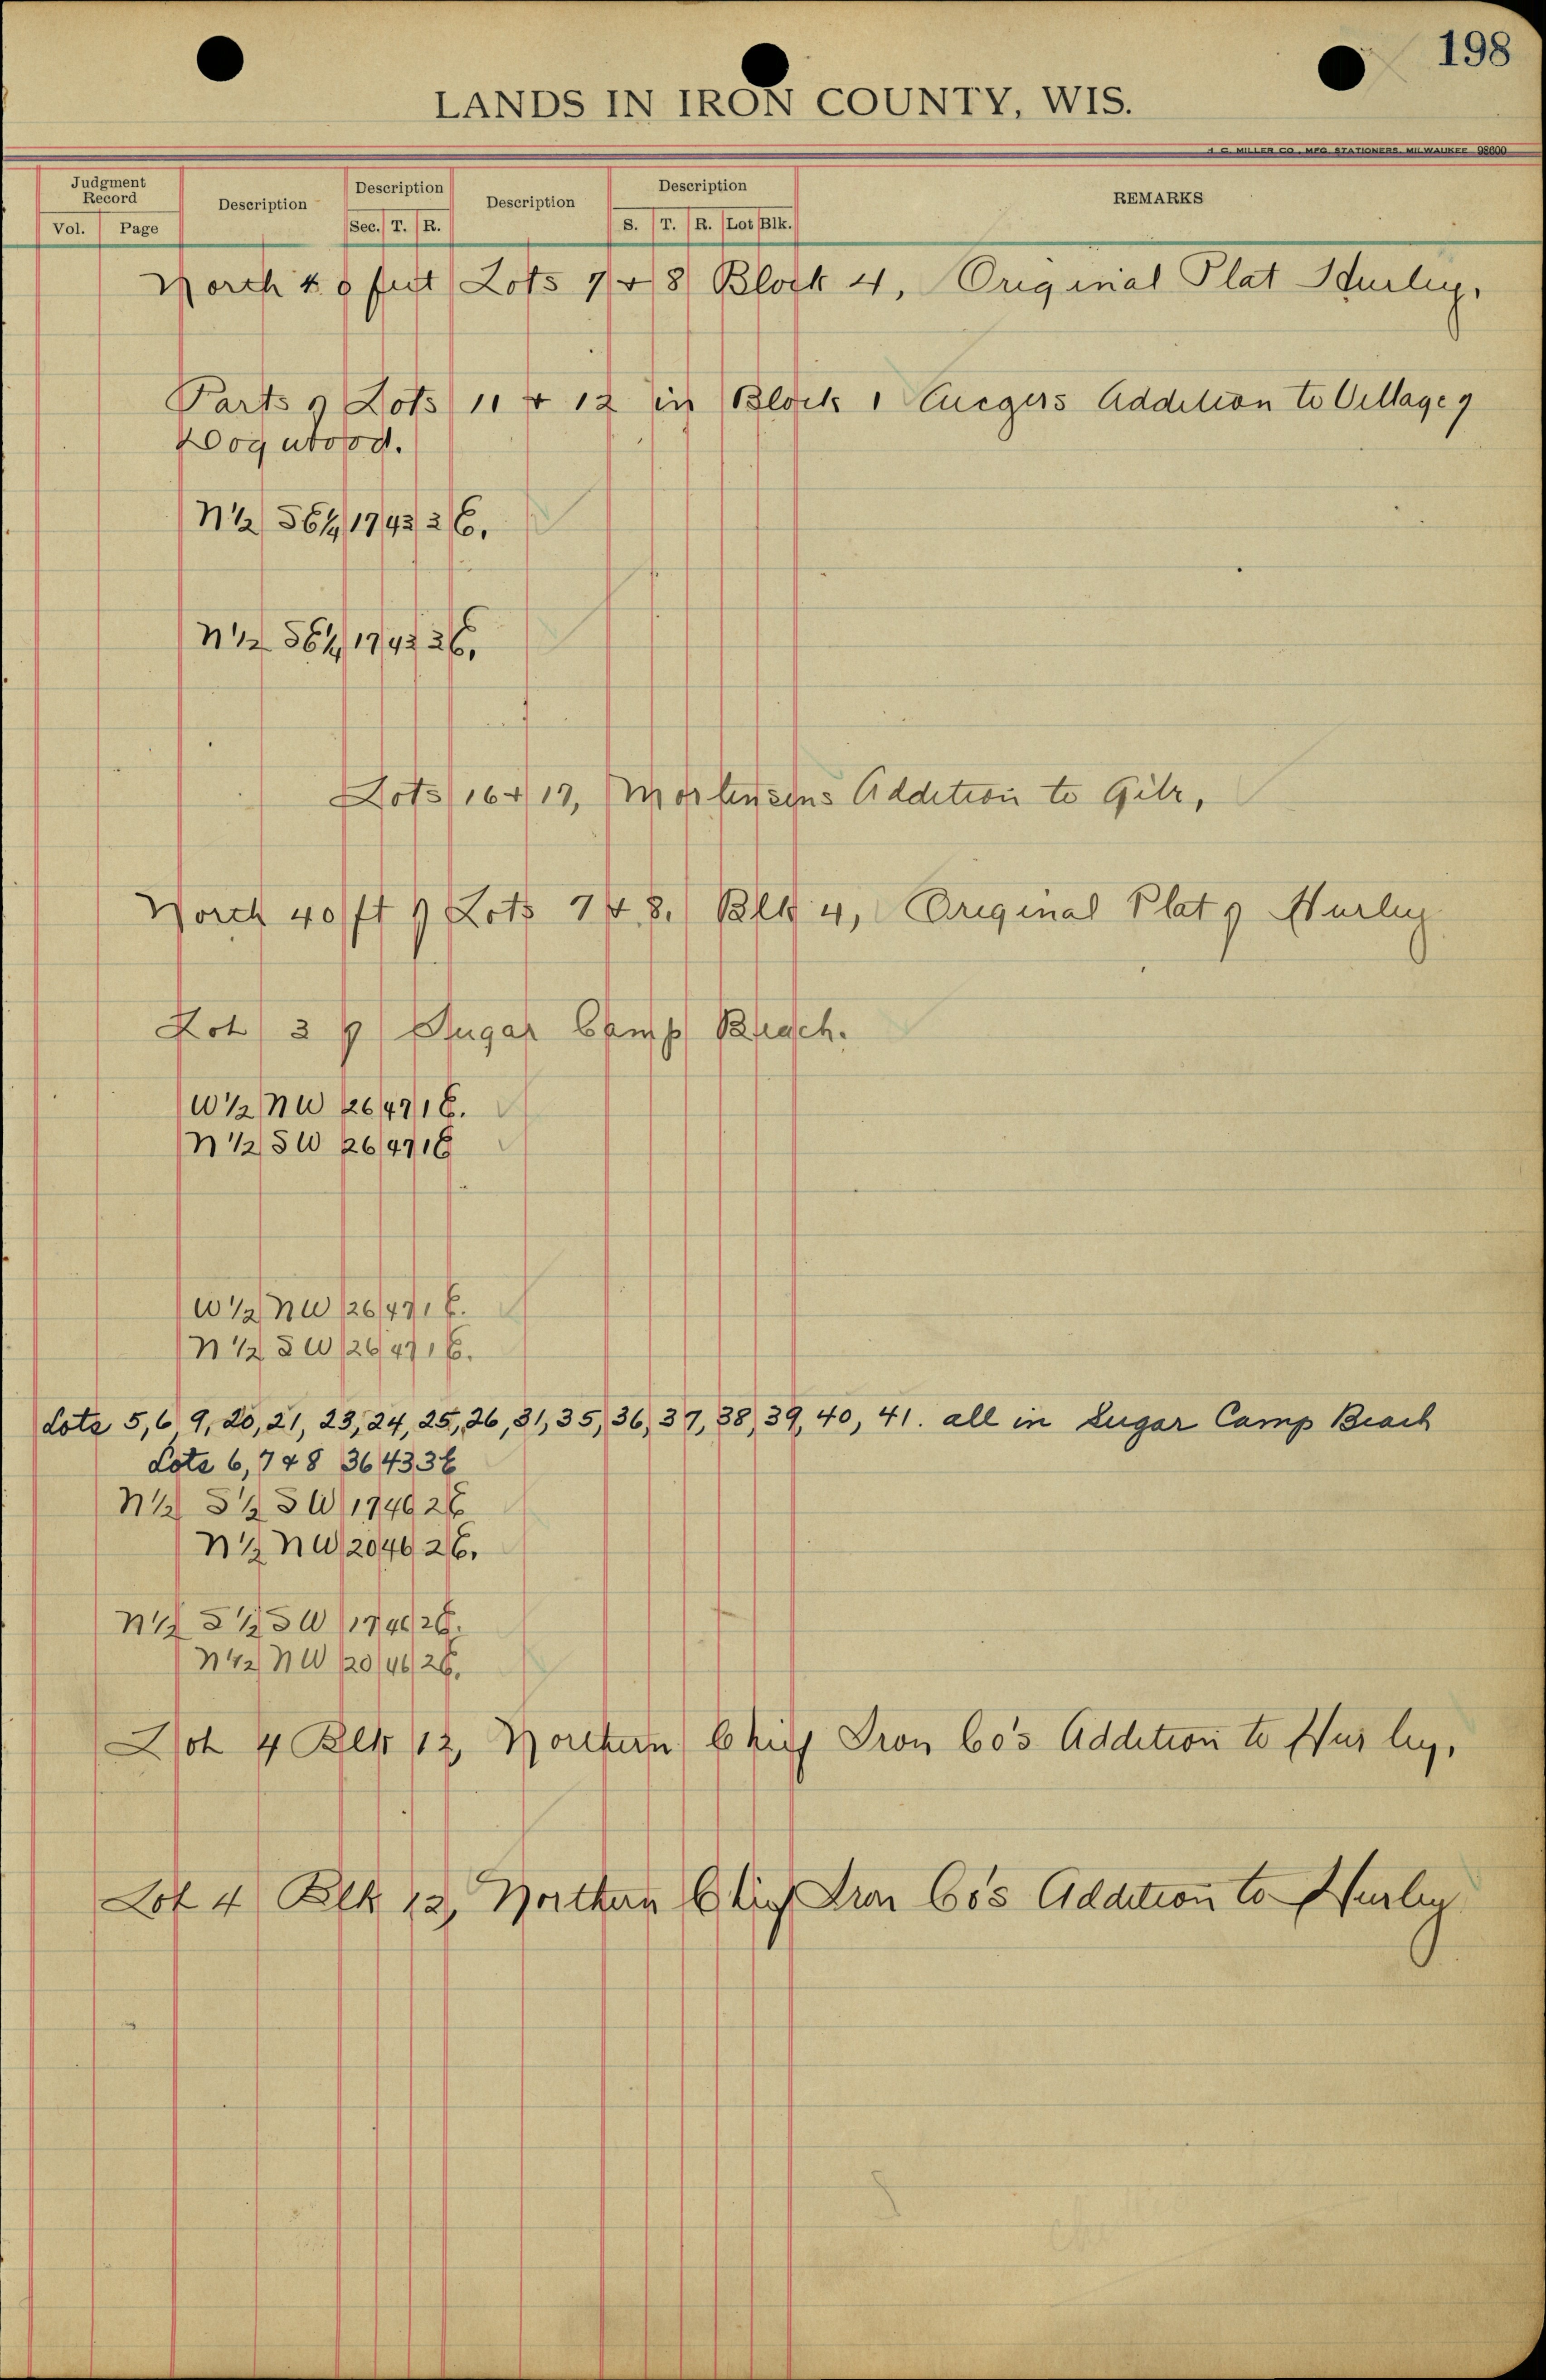 198
LANDS IN IRON COUNTY, WIS.
H. C. MILLER CO., MFG. STATIONERS, MILWAUKEE 98600
Judgment Record Description Description Description Description REMARKS
Vol. Page Sec. T. R. S. T. R. Lot Blk.
North 40 feet Lots 7 + 8 Block 4, Original Plat Hurley.
Parts of Lots 11 + 12 in Block 1 Addition to Village of
Dogwood.
N 1/2 SE 1/4 17 43 3 E.
N 1/2 SE 1/4 17 43 3 E.
Lots 16 + 17, Mortensens Addition to Gile,
North 40 ft of Lots 7 + 8. Blk 4, Original Plat of Hurley
Lot 3 of Sugar Camp Beach.
W 1/2 NW 26 47 1 E.
N 1/2 SW 26 47 1 E
W 1/2 NW 26 47 1 E.
N 1/2 SW 26 47 1 E.
Lots 5, 6, 9, 20, 21, 23, 24, 25, 26, 31, 35, 36, 37, 38, 39, 40, 41. all in Sugar Camp Beach
Lots 6, 7 + 8 36 43 3 E
N 1/2 S 1/2 SW 17 46 2 E
N 1/2 NW 20 46 2 E.
N 1/2 S 1/2 SW 17 46 2 E.
N 1/2 NW 20 46 2 E.
Lot 4 Blk 12, Northern Chief Iron Co's Addition to Hurley.
Lot 4 Blk 12, Northern Chief Iron Co's Addition to Hurley